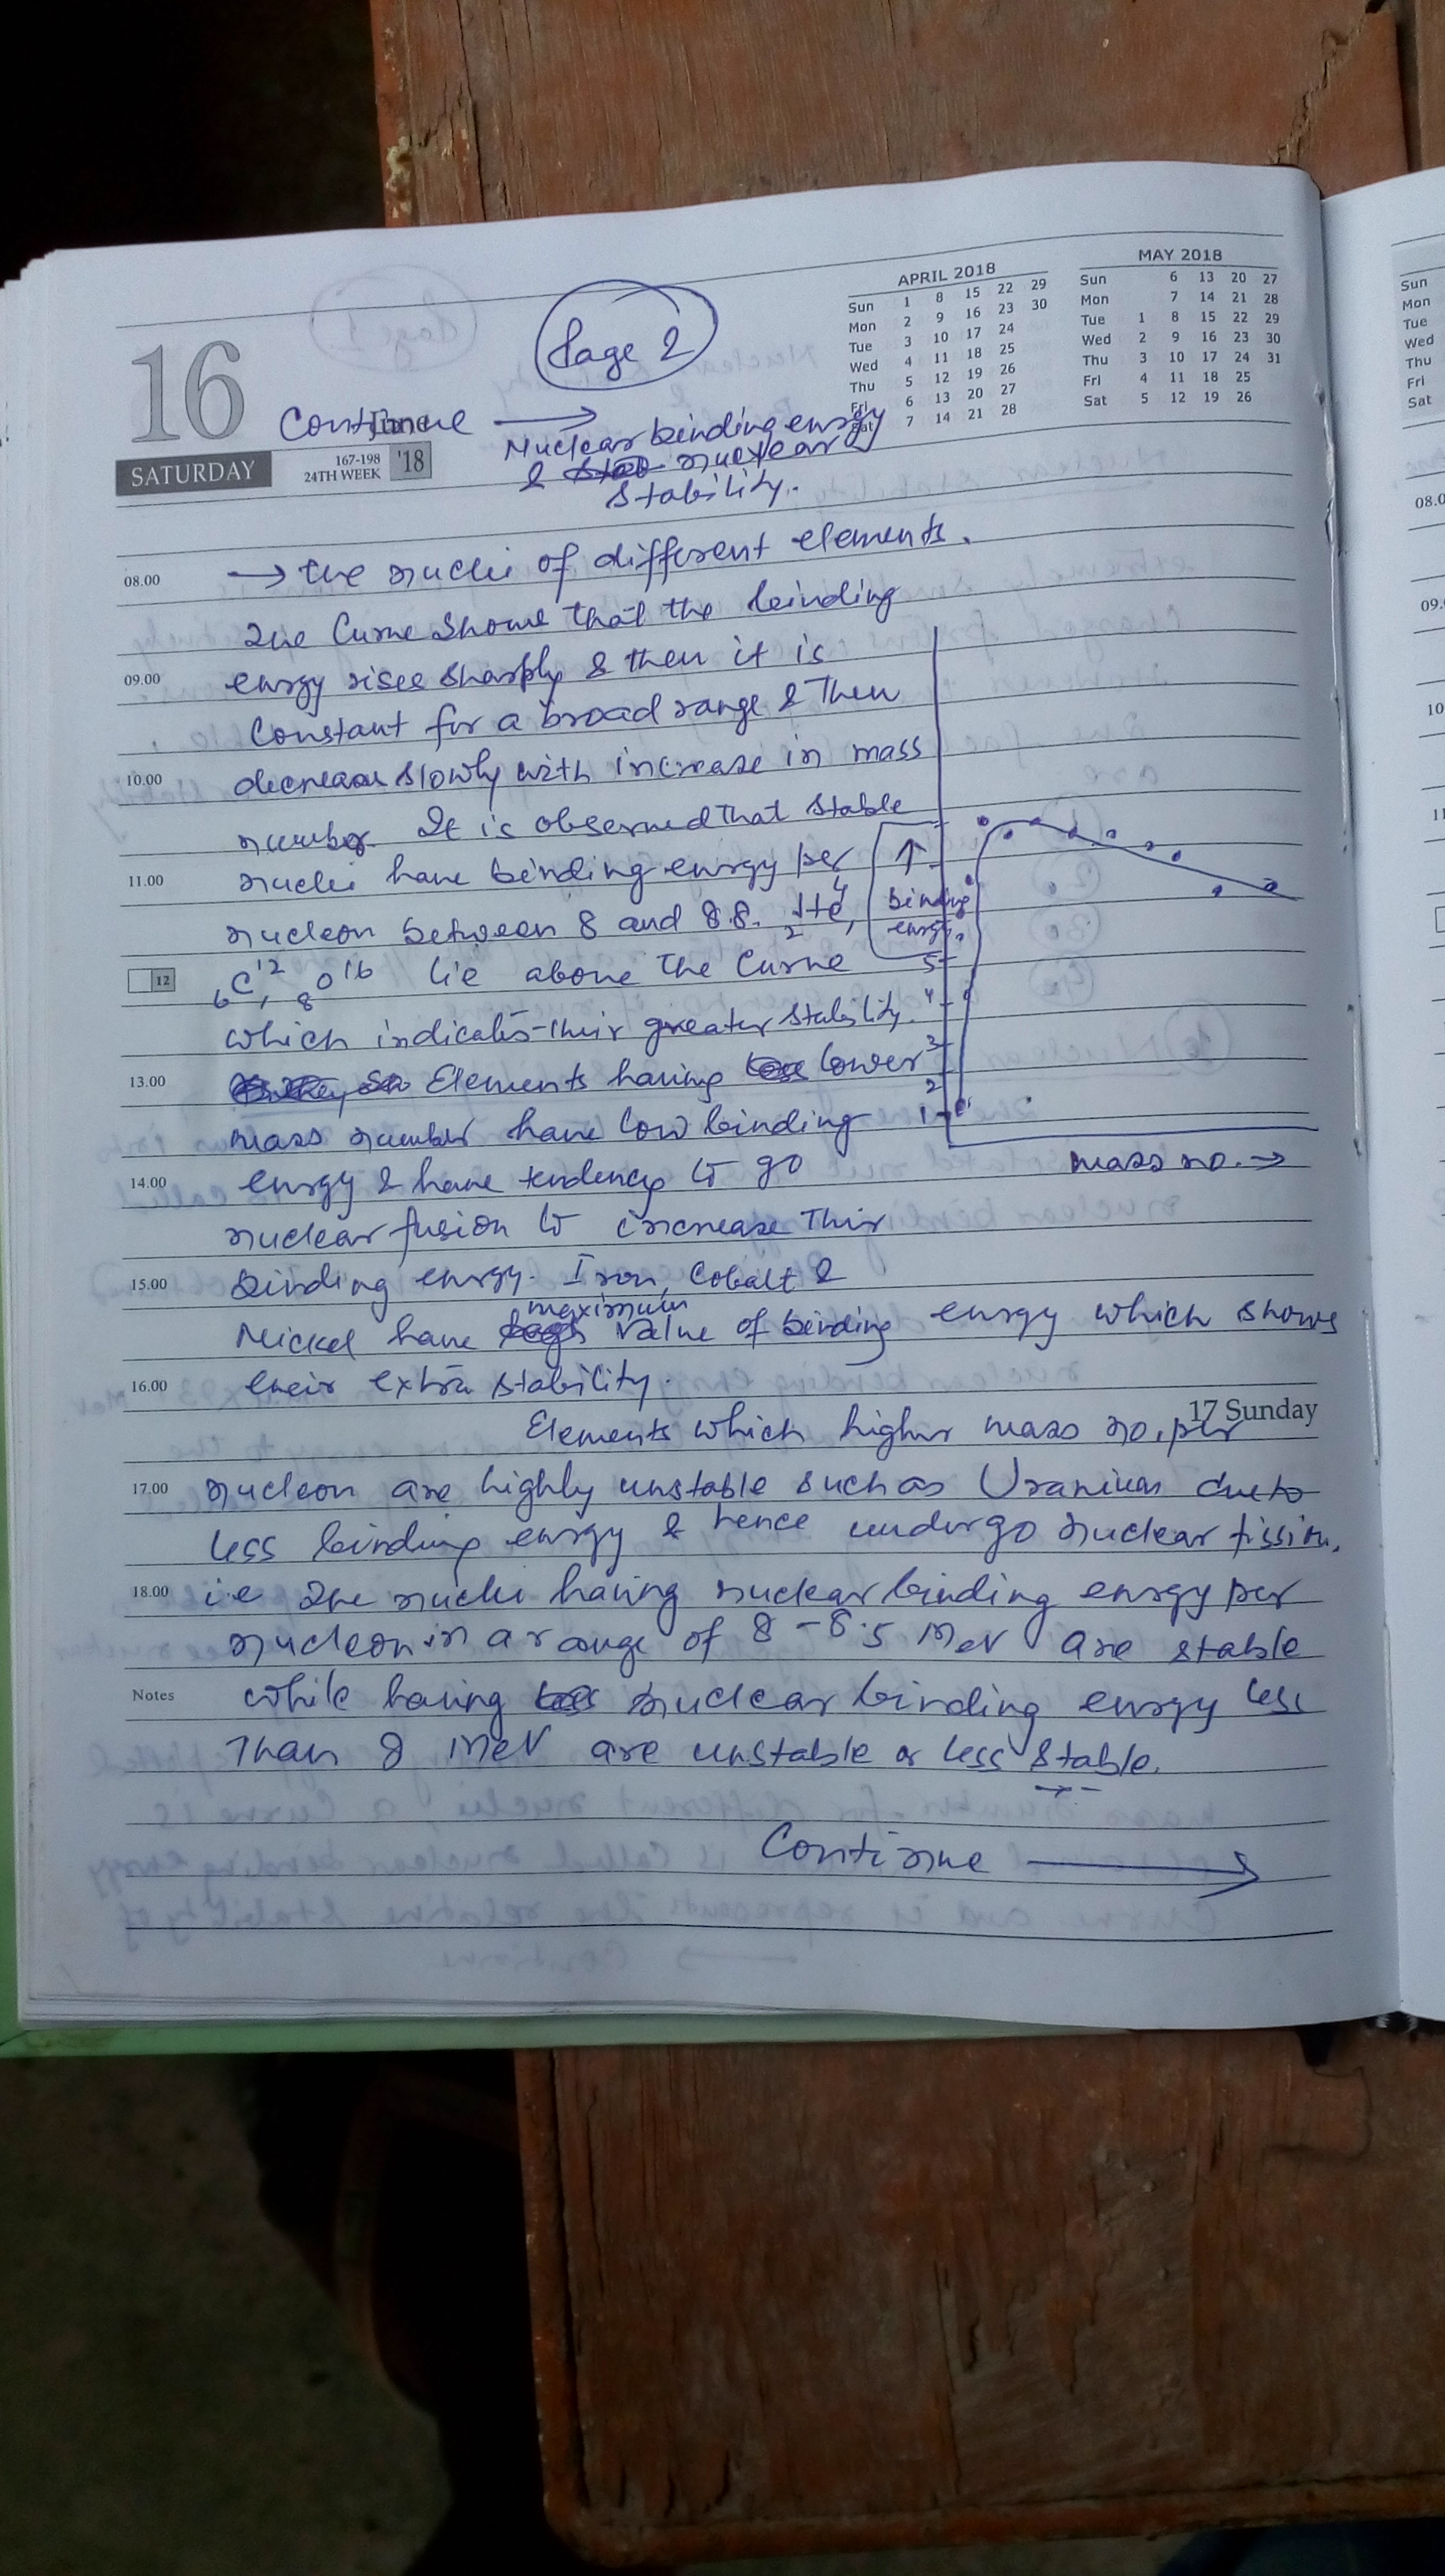 Page 2
16
June
SATURDAY
167-198
24TH WEEK
'18
APRIL 2018
Sun 1 8 15 22 29
Mon 2 9 16 23 30
Tue 3 10 17 24
Wed 4 11 18 25
Thu 5 12 19 26
Fri 6 13 20 27
Sat 7 14 21 28
MAY 2018
Sun 6 13 20 27
Mon 7 14 21 28
Tue 1 8 15 22 29
Wed 2 9 16 23 30
Thu 3 10 17 24 31
Fri 4 11 18 25
Sat 5 12 19 26
Continue →
Nuclear binding energy
& nuclear
Stability.
08.00 → the nuclei of different elements.
The Curve Shows that the binding
09.00 energy rises sharply & then it is
Constant for a broad range & Then
10.00 decreases slowly with increase in mass
number. It is observed that stable
11.00 nuclei have binding energy per
nucleon between 8 and 8.8. ₂He⁴,
12 ₆C¹², ₈O¹⁶ lie above the Curve
which indicates their greater stability.
13.00 Elements having lower
mass number have low binding
14.00 energy & have tendency to go
nuclear fusion to increase their
15.00 binding energy. Iron, Cobalt &
Nickel have maximum value of binding energy which shows
16.00 their extra stability.
17 Sunday
Elements which higher mass no. per
17.00 nucleon are highly unstable such as Uranium due to
less binding energy & hence undergo nuclear fission.
18.00 i.e The nuclei having nuclear binding energy per
nucleon in a range of 8 - 8.5 MeV are stable
Notes while having nuclear binding energy less
Than 8 MeV are unstable or less stable.
Continue →
↑
binding
energy
5
4
3
2
1
mass no. →
Sun
Mon
Tue
Wed
Thu
Fri
Sat